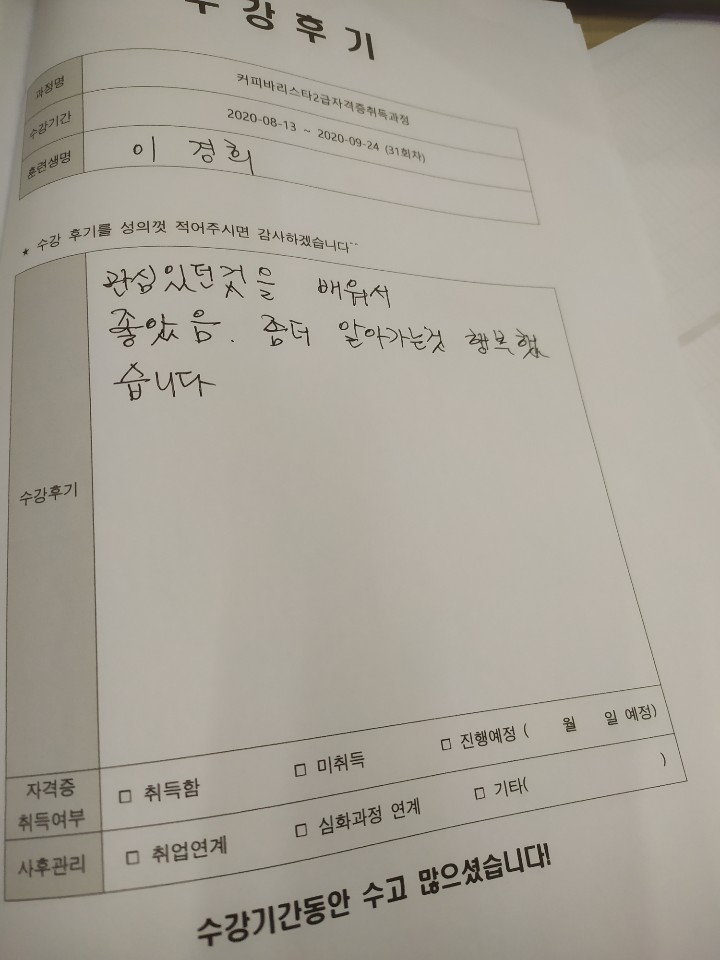 수강후기
과정명 커피바리스타2급자격증취득과정
수강기간 2020-08-13 ~ 2020-09-24 (31회차)
훈련생명 이 경희
★ 수강 후기를 성의껏 적어주시면 감사하겠습니다~~
수강후기
관심있던것을 배워서
좋았음. 좀더 알아가는것 행복했
습니다
자격증
취득여부
□ 취득함 □ 미취득 □ 진행예정 ( 월 일 예정)
사후관리 □ 취업연계 □ 심화과정 연계 □ 기타( )
수강기간동안 수고 많으셨습니다!